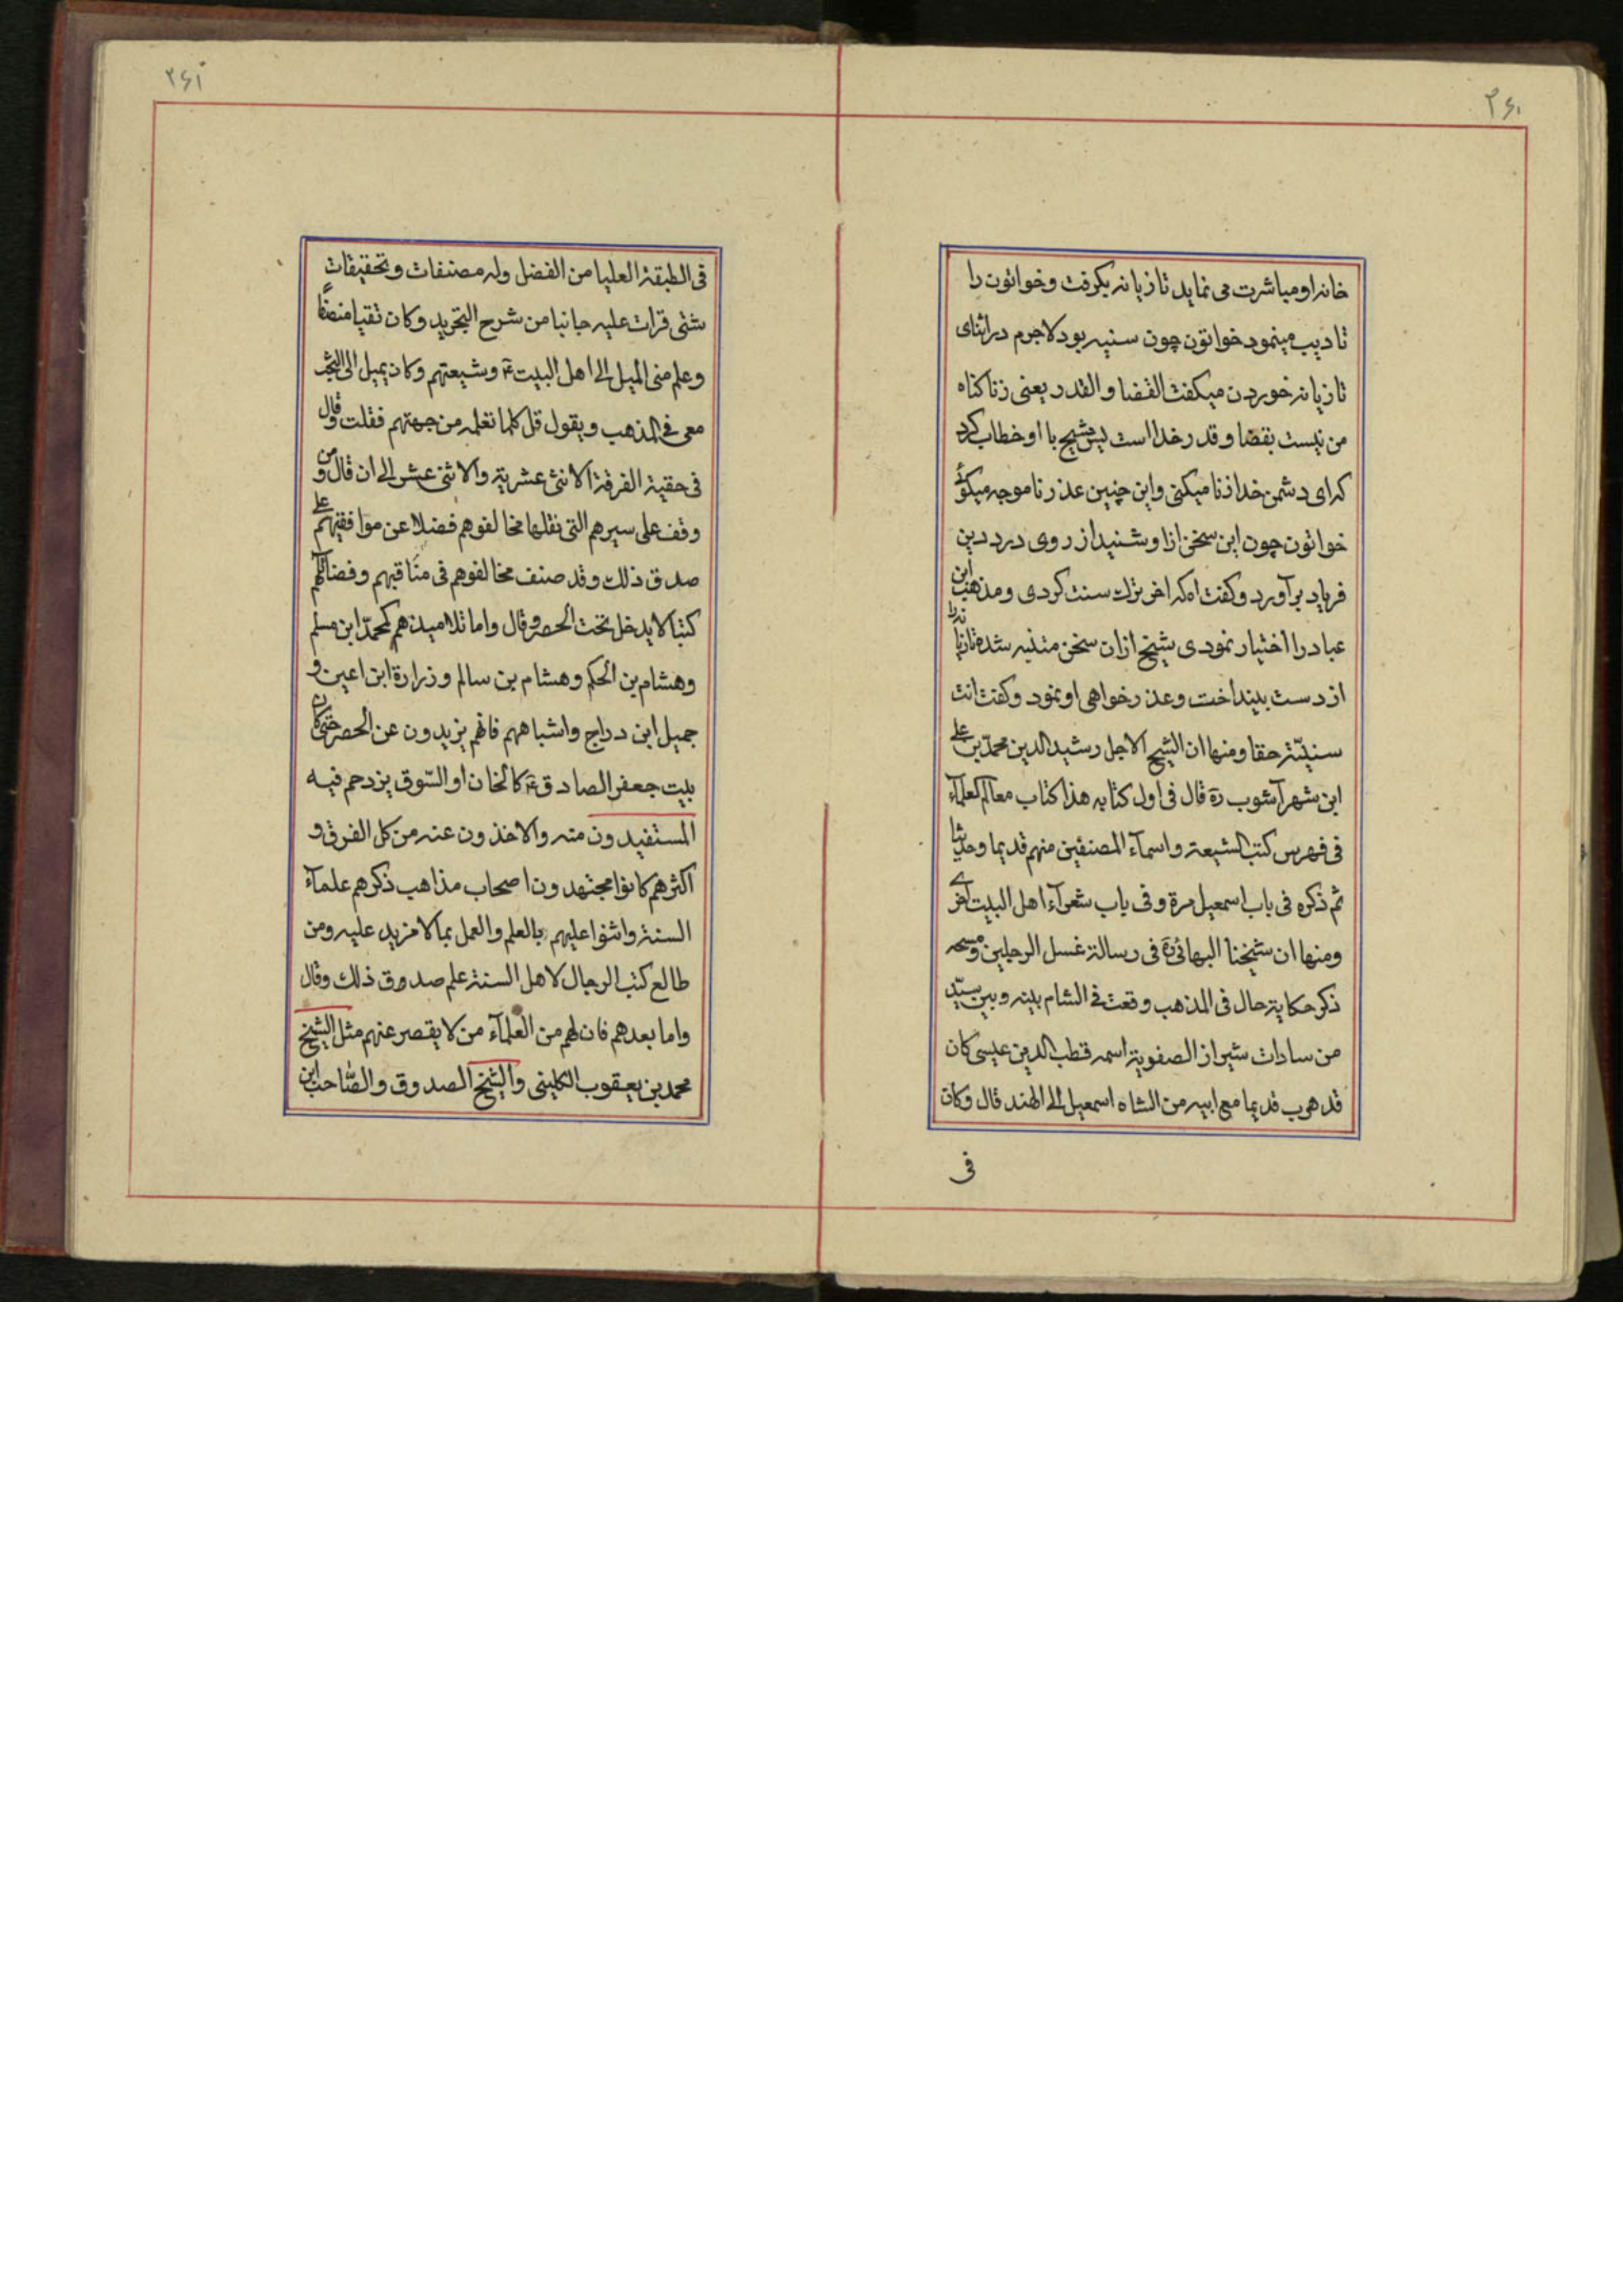 ۳۶۰
خانه او مباشرت می نماید تازیانه بگرفت و خواتون را
تادیب مینمود خواتون چون سنیه بود لاجرم در اثنای
تازیانه خوردن میکفت القضا و القدر یعنی زنا کناه
من نیست بقضا و قدر خدا است پس شیخ با او خطاب کرد
که ای دشمن خدا زنا میکنی و این چنین عذر ناموجه میکوئی
خواتون چون این سخن از او شنید از روی درد دین
فریاد برآورد و کفت اه که اخر ترک سنت کردی و مذهب ابن
عباد را اختیار نمودی شیخ از ان سخن متنبه شده تازیانه را
از دست بینداخت و عذر خواهی او نمود و کفت انت
سنیّة حقا ومنها ان الشیخ الاجل رشید الدین محمّد بن علی
ابن شهرآشوب ره قال فی اول کتابه هذا کتاب معالم العلمآء
فی فهرس کتب الشیعة واسمآء المصنفین منهم قدیما وحدیثا
ثم ذکره فی باب اسمعیل مرة وفی باب شعرآء اهل البیت اخری
ومنها ان شیخنا البهائی ره فی رسالة غسل الرجلین ومسحه
ذکر حکایة حال فی المذهب وقعت فی الشام بینه وبین سیّد
من سادات شیراز الصفویة اسمه قطب الدین عیسی کان
قد هرب قدیما مع ابیه من الشاه اسمعیل الی الهند قال وکان
فی
۳۶۱
فی الطبقة العلیا من الفضل وله مصنفات وتحقیقات
شتی قرات علیه جانبا من شرح التجرید وکان تقیا منصفًا
وعلم منی المیل الی اهل البیت ع وشیعتهم وکان یمیل الی البحث
معی فی المذهب ویقول قل کلما تعلمه من جهتهم فقلت وقال
فی حقیة الفرقة الاثنی عشریة والاثنی عشر الی ان قال ومن
وقف علی سیرهم التی نقلها مخالفوهم فضلا عن موافقیهم علم
صدق ذلک وقد صنف مخالفوهم فی مناقبهم وفضائلهم
کتبا لا یدخل تحت الحصر وقال واما تلامیذهم کمحمّد ابن مسلم
وهشام بن الحکم وهشام بن سالم وزرارة ابن اعین و
جمیل ابن دراج واشباههم فانهم یزیدون عن الحصر حتی کان
بیت جعفر الصادق ع کالخان او السّوق یزدحم فیه
المستفیدون منه والاخذون عنه من کل الفرق و
اکثرهم کانوا مجتهدون اصحاب مذاهب ذکرهم علمآء
السنة واثنوا علیهم بالعلم والعمل بما لا مزید علیه ومن
طالع کتب الرجال لاهل السنة علم صدوق ذلک وقال
واما بعدهم فان لهم من العلمآء من لا یقصر عنهم مثل الشیخ
محمد بن یعقوب الکلینی والشیخ الصدوق والصّاحب ابن